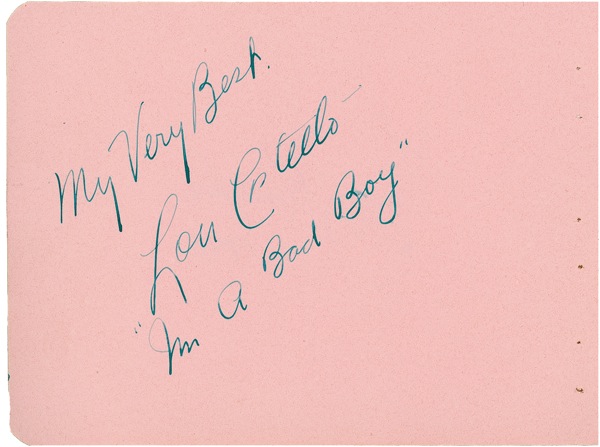 My Very Best.
Lou Costello
"Im A Bad Boy"